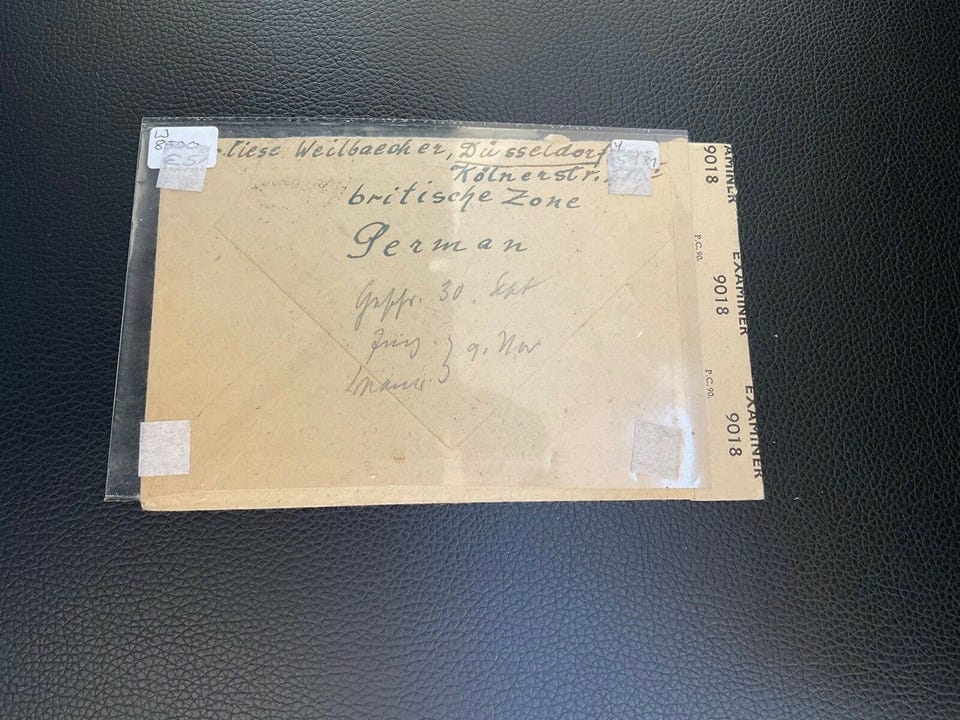 W
8500
£5
-liese Weilbaecher, Düsseldorf
Kölnerstr.
britische Zone
German
30. Sept
9. Nov
AMINER
9018
P.C. 90.
EXAMINER
9018
P.C. 90.
EXAMINER
9018